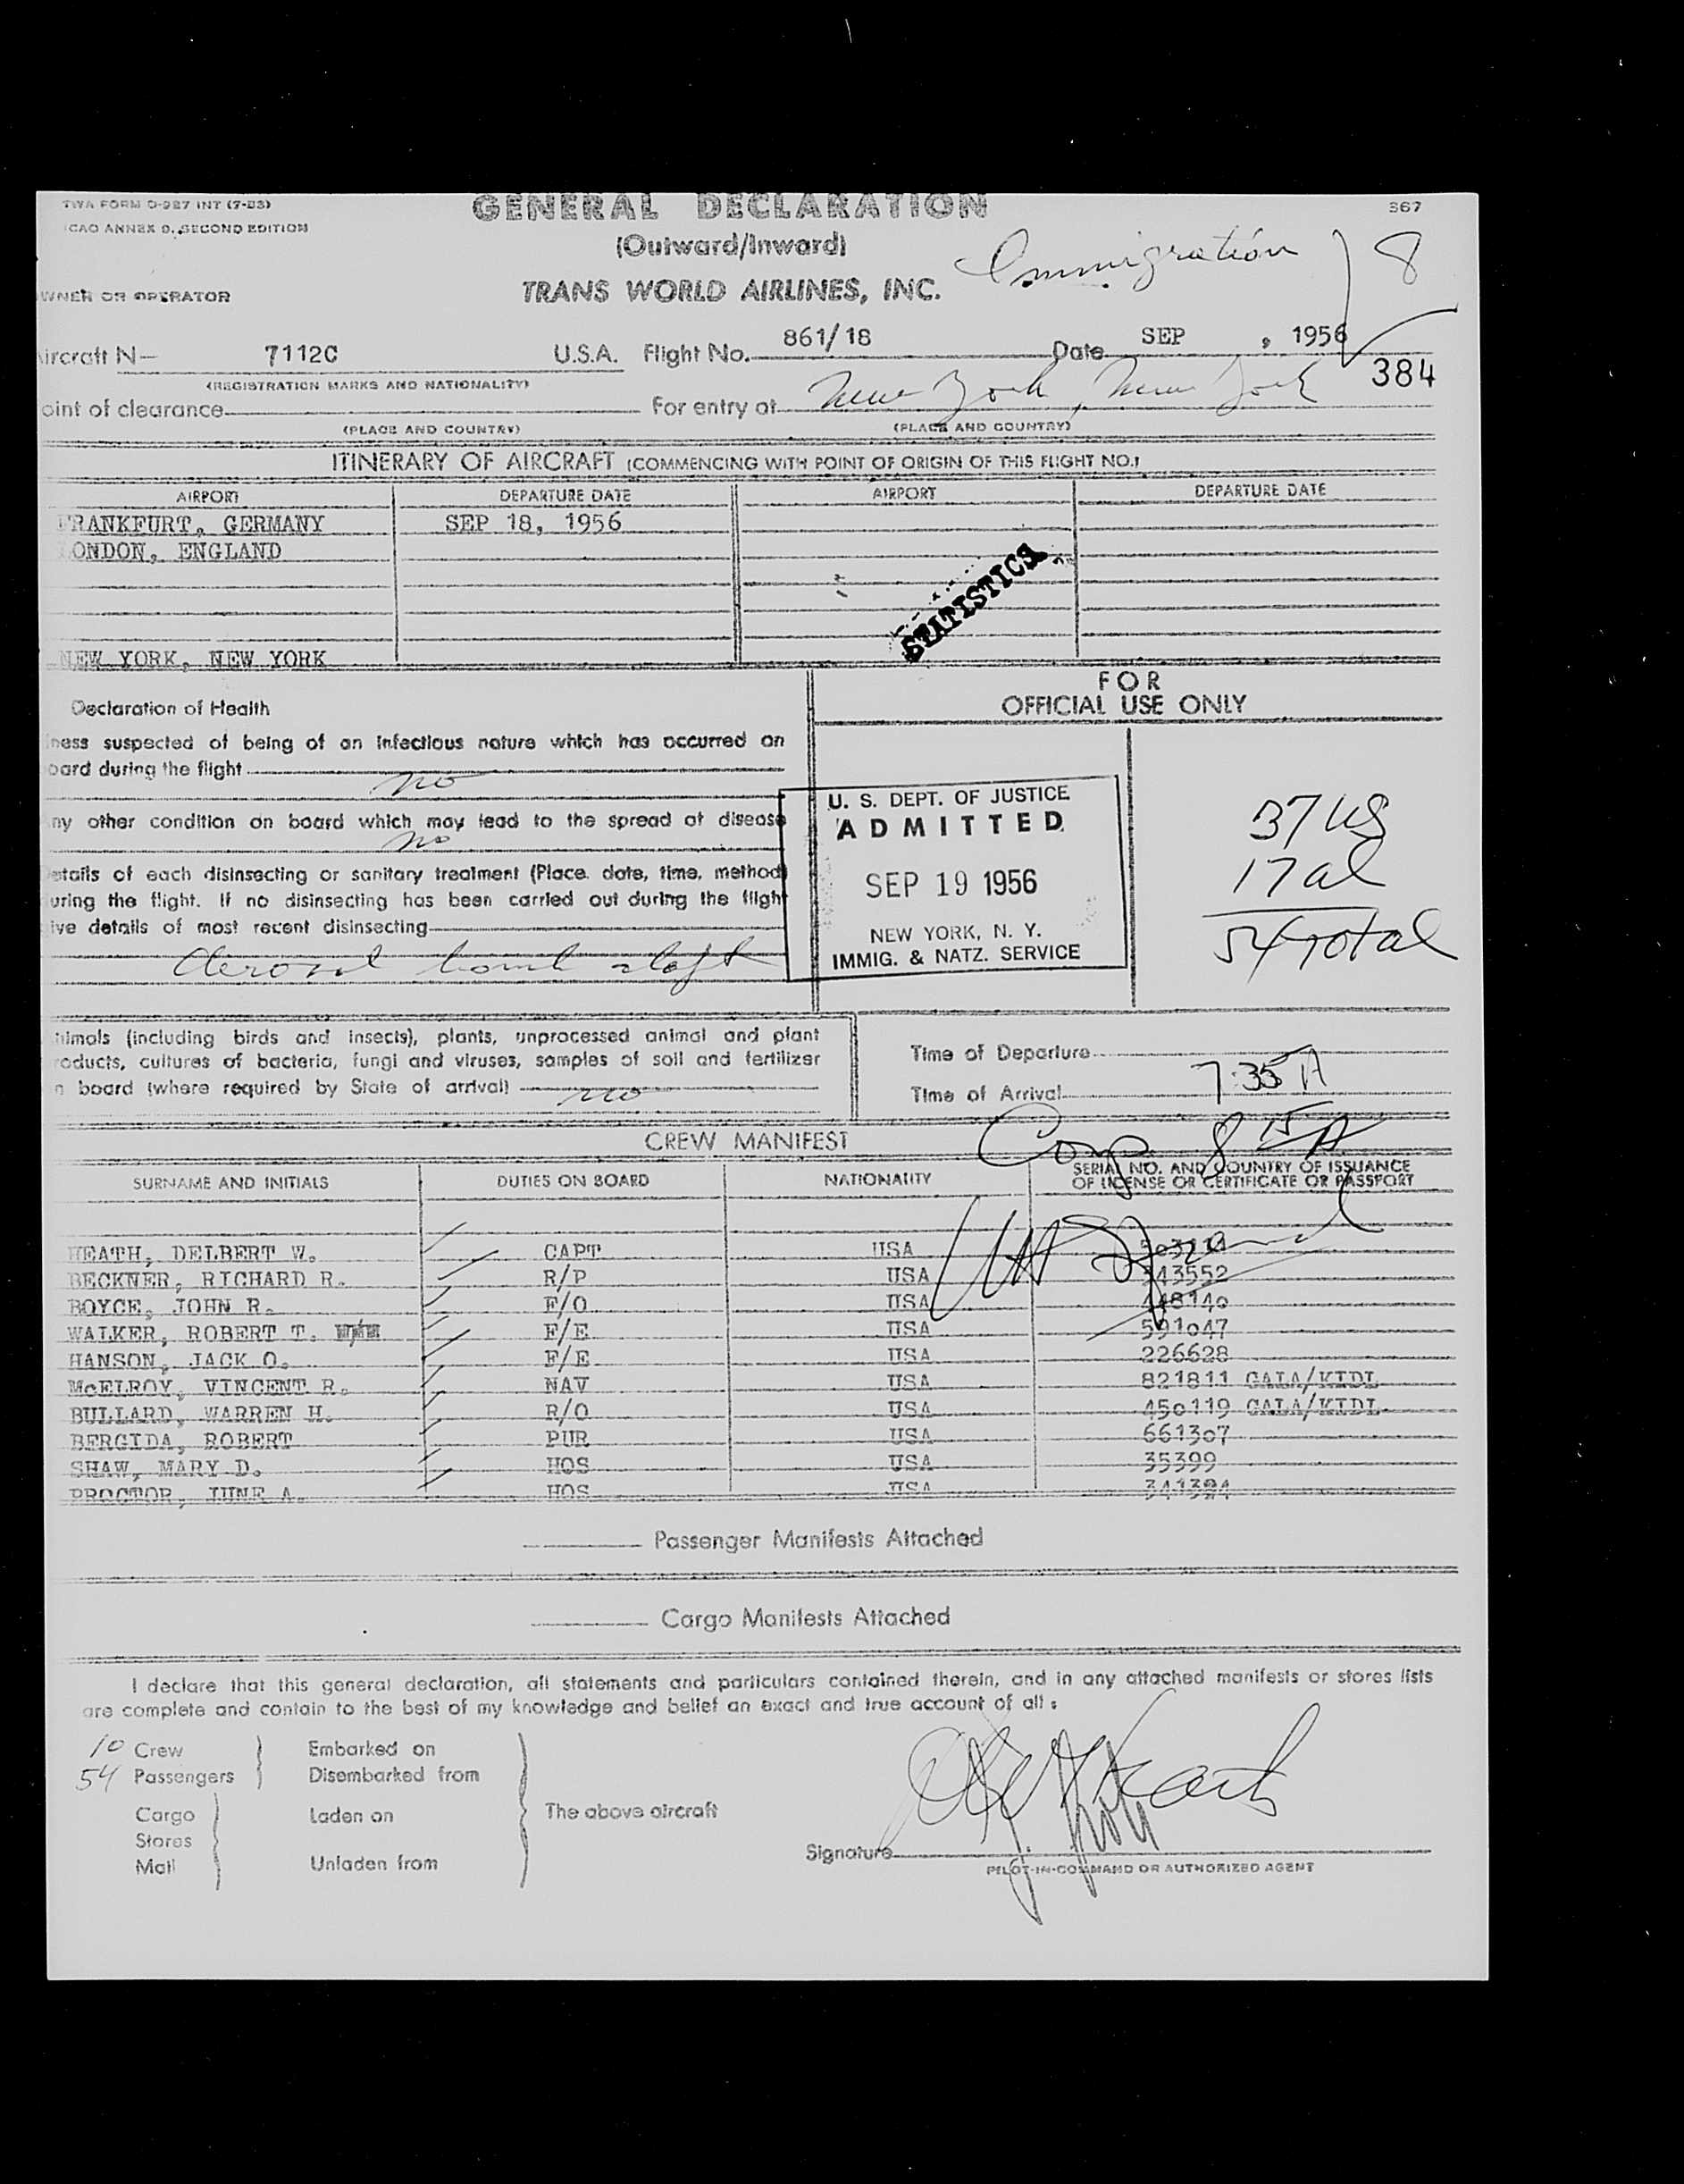 TWA FORM O-927 INT (7-53)
GENERAL DECLARATION
367
ICAO ANNEX 9, SECOND EDITION
(Outward/Inward)
Immigration
8
WNER OR OPERATOR
TRANS WORLD AIRLINES, INC.
ircraft N— 7112C U.S.A. Flight No. 861/18 Date SEP , 1956
(REGISTRATION MARKS AND NATIONALITY)
384
oint of clearance For entry at New York, New York
(PLACE AND COUNTRY) (PLACE AND COUNTRY)
ITINERARY OF AIRCRAFT (COMMENCING WITH POINT OF ORIGIN OF THIS FLIGHT NO.)
AIRPORT DEPARTURE DATE AIRPORT DEPARTURE DATE
FRANKFURT, GERMANY SEP 18, 1956
LONDON, ENGLAND
STATISTICS
NEW YORK, NEW YORK
FOR
OFFICIAL USE ONLY
Declaration of Health
lness suspected of being of an infectious nature which has occurred on
oard during the flight
no
ny other condition on board which may lead to the spread of disease
no
etails of each disinsecting or sanitary treatment (Place, date, time, method)
uring the flight. If no disinsecting has been carried out during the fligh
ive details of most recent disinsecting
Aerosol bomb aloft
U. S. DEPT. OF JUSTICE
ADMITTED
SEP 19 1956
NEW YORK, N. Y.
IMMIG. & NATZ. SERVICE
37 US
17 al
54 total
nimals (including birds and insects), plants, unprocessed animal and plant
roducts, cultures of bacteria, fungi and viruses, samples of soil and fertilizer
n board (where required by State of arrival) no
Time of Departure
Time of Arrival 7:35 A
CREW MANIFEST
SURNAME AND INITIALS DUTIES ON BOARD NATIONALITY SERIAL NO. AND COUNTRY OF ISSUANCE
OF LICENSE OR CERTIFICATE OR PASSPORT
HEATH, DELBERT W. CAPT USA
BECKNER, RICHARD R. R/P USA 343552
BOYCE, JOHN R. F/O USA 448140
WALKER, ROBERT T. F/E USA 591047
HANSON, JACK O. F/E USA 226628
McELROY, VINCENT R. NAV USA 821811 GALA/KIDL
BULLARD, WARREN H. R/O USA 450119 GALA/KIDL
BERGIDA, ROBERT PUR USA 661307
SHAW, MARY D. HOS USA 35399
PROCTOR, JUNE A. HOS USA 341384
Passenger Manifests Attached
Cargo Manifests Attached
I declare that this general declaration, all statements and particulars contained therein, and in any attached manifests or stores lists
are complete and contain to the best of my knowledge and belief an exact and true account of all :
10 Crew Embarked on
54 Passengers Disembarked from
Cargo Laden on The above aircraft
Stores
Mail Unladen from
Signature
PILOT-IN-COMMAND OR AUTHORIZED AGENT